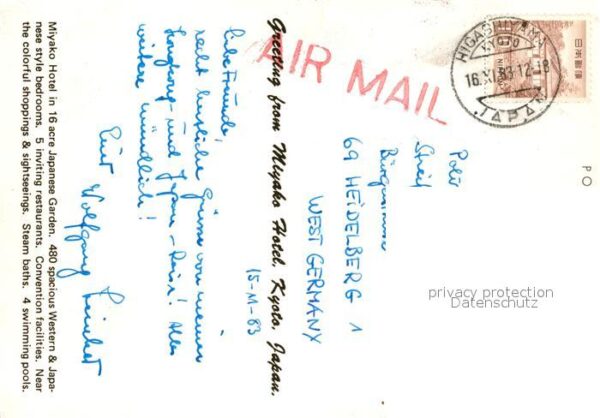 Miyako Hotel in 16 acre Japanese Garden. 480 spacious Western & Japa-
nese style bedrooms. 5 inviting restaurants. Convention facilities. Near
the colorful shoppings & sightseeings. Steam baths. 4 swimming pools.
Greeting from Miyako Hotel, Kyoto, Japan.
15-M-83
Liebe Freunde,
recht herzliche Grüsse von meiner
Hongkong- und Japan-Reise! Alles
weitere mündlich!
Euer Wolfgang
AIR MAIL
HIGASHIYAMA
KYOTO
16.XI.83.12-18
JAPAN
日本郵便
NIPPON
69 HEIDELBERG 1
WEST GERMANY
P O
privacy protection
Datenschutz